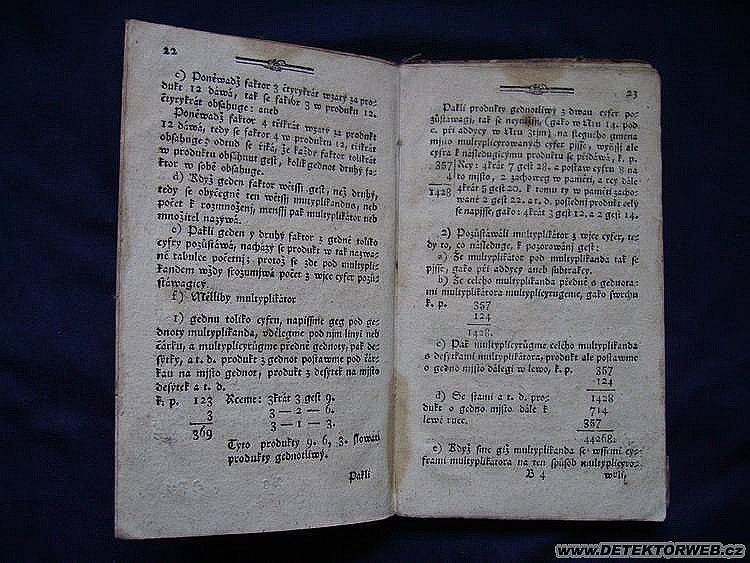 22
c) Poněwadž faktor 3 čtyrykrát wzatý za pro-
dukt 12 dáwá, tak se faktor 3 w produktu 12.
čtyrykrát obsahuge: aneb
Poněwadž faktor 4 třikrát wzatý za produkt
12 dáwá, tedy se faktor 4 w produktu 12, třikrát
obsahuge: odtud se řjká, že každý faktor tolikrát
w produktu obsáhnut gest, kolik gednot druhý fa-
ktor w sobě obsahuge.
d) Když geden faktor wětssj gest, než druhý,
tedy se obyčegně ten wětssj multyplikandus, neb
počet k rozmnoženj, menssj pak multyplikátor neb
množitel nazýwá.
e) Pakli geden y druhý faktor z gedné toliko
cyfry pozůstáwá, nacházý se produkt w tak nazwa-
né tabulce početnj; protož se zde pod multypli-
kandem wždy srozumjwá počet z wjce cyfer pozů-
stáwagjcý.
f) Mělliby multyplikátor
1) gednu toliko cyfru, napjssme geg pod ge-
dnoty multyplikanda, vdělegme pod njm linyi neb
čárku, a multyplicyrůgme předně gednoty, pak de-
sýtky, a t. d. produkt z gednot postawme pod čár-
kau na mjsto gednot, produkt z desýtek na mjsto
desýtek a t. d.
k. p. 123 Rceme: 3krát 3 gest 9.
3 3 — 2 — 6.
369 3 — 1 — 3.
Tyto produkty 9. 6, 3. slowau
produkty gednotliwý.
Pakli
23
Pakli produkty gednotliwý z dwau cyfer po-
zůstáwagj, tak se neynjžssj, (gako w čjslu 14. pod
c. při addycy w čjslu 3tjm) na stegného gmena
mjsto multyplicyrowaných cyfer pjsse, wyžssj ale
cyfra k následugjcýmu produktu se přidáwá, k. p.
357 Rcy: 4krát 7 gest 28. a postaw cyfru 8 na
4 to mjsto, 2 zachoweg w paměti, a rcy dále
1428 4krát 5 gest 20. k tomu ty w paměti zacho-
wané 2 gest 22. a t. d. poslednj produkt celý
se napjsse, gako: 4krát 3 gest 12. a 2 gest 14.
2) Pozůstáwáli multyplikátor z wjce cyfer, te-
dy to, co následuge, k pozorowánj gest:
a) Že multyplikátor pod multyplikanda tak se
pjsse, gako při addycy aneb subtrakcy.
b) Že celého multyplikanda předně s gednota-
mi multyplikátora multyplicyrugeme, gako swrchu
k. p. 357
124
1428.
c) Pak multyplicyrůgme celého multyplikanda
s desýtkami multyplikátora, produkt ale postawme
o gedno mjsto dálegi w lewo, k. p. 357
124
d) Se stami a t. d. pro- 1428
dukt o gedno mjsto dále k 714
lewé ruce. 357
44268.
e) Když sme giž multyplikanda se wssemi cy-
frami multyplikátora na ten spůsob multyplicyro-
B 4 wali,
www.DETEKTORWEB.cz